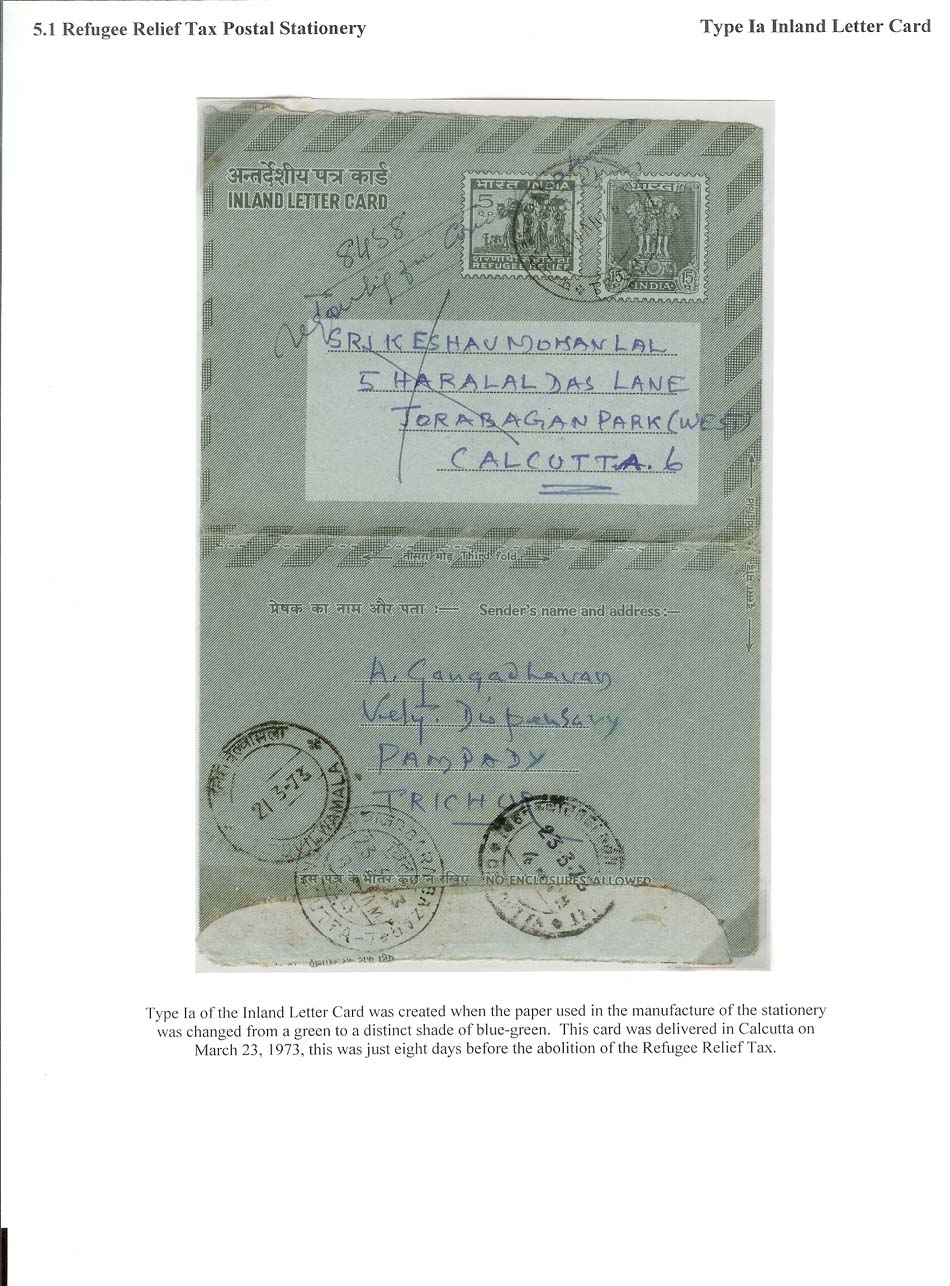 5.1 Refugee Relief Tax Postal Stationery
Type Ia Inland Letter Card
अन्तर्देशीय पत्र कार्ड
INLAND LETTER CARD
भारत INDIA
5
REFUGEE RELIEF
भारत
15 15
INDIA
8458
SRI KESHAV MOHAN LAL
5 HARALAL DAS LANE
JORABAGAN PARK (WEST)
CALCUTTA. 6
तीसरा मोड़ Third fold
दूसरा मोड़ Second fold
प्रेषक का नाम और पता :— Sender's name and address:—
A. Gangadharan
Vely. Dispensary
PAMPADY
TRICHUR
21-3-73
23-3-73
इस पत्र के भीतर कुछ न रखिए NO ENCLOSURES ALLOWED
Type Ia of the Inland Letter Card was created when the paper used in the manufacture of the stationery
was changed from a green to a distinct shade of blue-green. This card was delivered in Calcutta on
March 23, 1973, this was just eight days before the abolition of the Refugee Relief Tax.